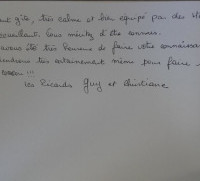 gîte, très calme et bien équipé par des
accueillants. Vous méritez d'être connus.
avons été très heureux de faire votre connaissance
très certainement même pour faire
!!!
Les Ricards Guy et Christiane